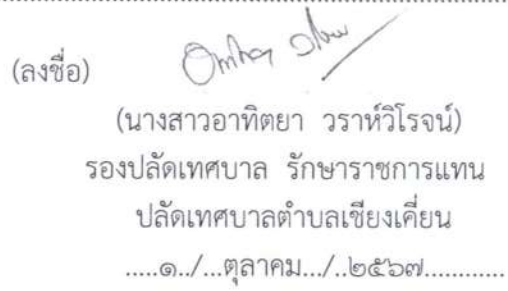 (ลงชื่อ)
(นางสาวอาทิตยา วราห์วิโรจน์)
รองปลัดเทศบาล รักษาราชการแทน
ปลัดเทศบาลตำบลเชียงเคี่ยน
.....๑./...ตุลาคม.../..๒๕๖๗............